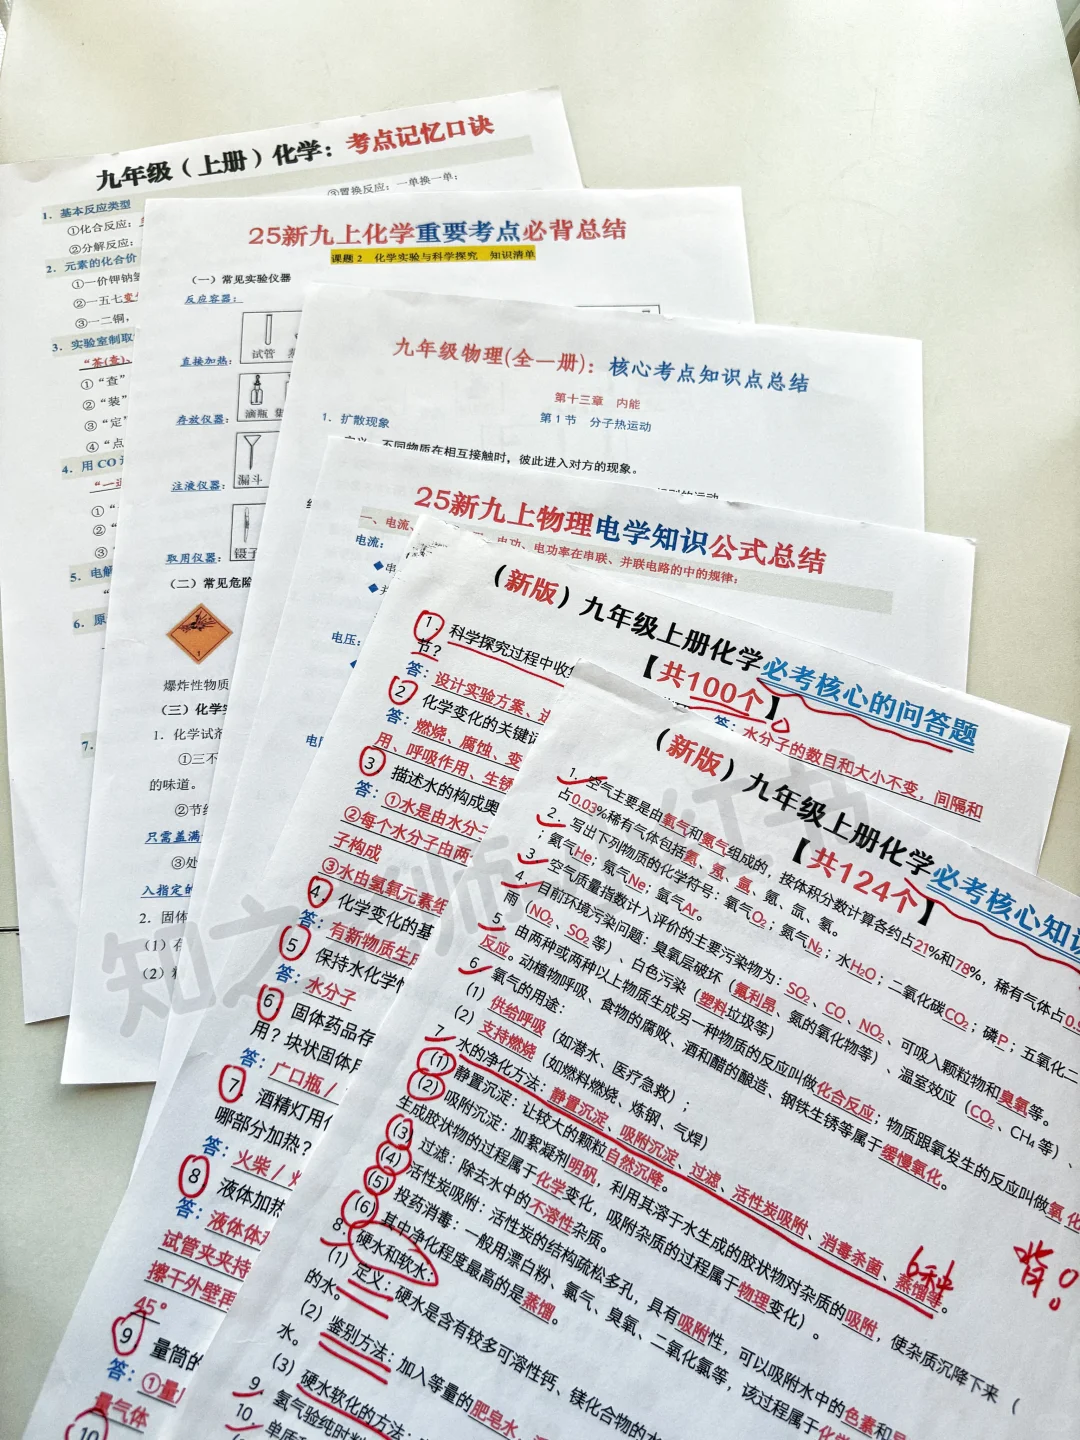 九年级（上册）化学：考点记忆口诀
1．基本反应类型
③置换反应：一单换一单；
①化合反应：
②分解反应：
2．元素的化合价
①一价钾钠氢
②一五七变价
③一二铜，
3．实验室制取
①“查”
②“装”
③“定”
④“点
4．用 CO
①“
②“
③
5．电解
6．原
7．
25新九上化学重要考点必背总结
课题 2 化学实验与科学探究 知识清单
（一）常见实验仪器
反应容器：
直接加热：
试管
存放仪器：
滴瓶 集
注液仪器：
漏斗
取用仪器：
镊子
（二）常见危险
爆炸性物质
（三）化学实
1．化学试剂
①三不
的味道。
②节约
只需盖满
③处
入指定的
2．固体
（1）存
（2）
九年级物理(全一册)：核心考点知识点总结
第十三章 内能
第 1 节 分子热运动
1．扩散现象
定义：不同物质在相互接触时，彼此进入对方的现象。
25新九上物理电学知识公式总结
一、电流、
电功、电功率在串联、并联电路的中的规律：
电流：
◆串
◆并
电压：
电阻
（新版）九年级上册化学必考核心的问答题
【共100个】
1．科学探究过程中收集
节？
答：设计实验方案、进
2 化学变化的关键词
答：燃烧、腐蚀、变
用、呼吸作用、生锈
3 描述水的构成奥
答：①水是由水分子
②每个水分子由两个
子构成
③水由氢氧元素组
4．化学变化的基
答：有新物质生成
5 保持水化学性
答：水分子
6 固体药品存
用？块状固体用
答：广口瓶 /
7．酒精灯用什
哪部分加热？
答：火柴 /
8 液体加热
答：液体体积
试管夹夹持
擦干外壁再
45°
9 量筒的
答：①量
量气体
10
答：水分子的数目和大小不变，间隔和
（新版）九年级上册化学必考核心知识
【共124个】
1．空气主要是由氧气和氮气组成的，按体积分数计算各约占21%和78%，稀有气体占0.9
占0.03%稀有气体包括氦、氖、氩、氪、氙、氡。
2．写出下列物质的化学符号：氧气O₂；氮气N₂；水H₂O；二氧化碳CO₂；磷P；五氧化二
；氦气He；氖气Ne；氩气Ar。
3．空气质量指数计入评价的主要污染物为：SO₂、CO、NO₂、可吸入颗粒物和臭氧等。
4．目前环境污染问题：臭氧层破坏（氟利昂、氮的氧化物等）、温室效应（CO₂、CH₄ 等）、
雨（NO₂、SO₂ 等）、白色污染（塑料垃圾等）
5 由两种或两种以上物质生成另一种物质的反应叫做化合反应；物质跟氧发生的反应叫做氧化
反应。动植物呼吸、食物的腐败、酒和醋的酿造、钢铁生锈等属于缓慢氧化。
6．氧气的用途：
（1）供给呼吸（如潜水、医疗急救）；
（2）支持燃烧（如燃料燃烧、炼钢、气焊）
7．水的净化方法：静置沉淀、吸附沉淀、过滤、活性炭吸附、消毒杀菌、蒸馏等。
6种
背。
（1）静置沉淀：让较大的颗粒自然沉降。
（2）吸附沉淀：加絮凝剂明矾，利用其溶于水生成的胶状物对杂质的吸附，使杂质沉降下来（
生成胶状物的过程属于化学变化，吸附杂质的过程属于物理变化）。
（3）过滤：除去水中的不溶性杂质。
（4）活性炭吸附：活性炭的结构疏松多孔，具有吸附性，可以吸附水中的色素和异
（5）投药消毒：一般用漂白粉、氯气、臭氧、二氧化氯等，该过程属于化学
（6）其中净化程度最高的是蒸馏。
8．硬水和软水：
（1）定义：硬水是含有较多可溶性钙、镁化合物的水
的水。
（2）鉴别方法：加入等量的肥皂水，
水。
（3）硬水软化的方法：
9 氢气验纯时
10